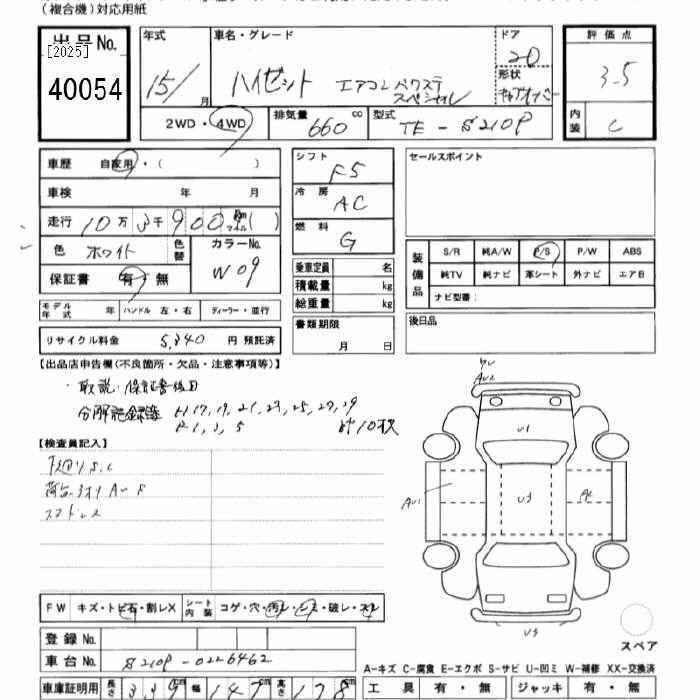 (複合機)対応用紙
出品No.
[2025]
40054
年式 15/ 月
車名・グレード ハイゼット エアコンパワステ スペシャル
ドア 2D
形状 キャブオーバー
評価点 3.5
内装 C
2WD・4WD
排気量 660 cc
型式 TE-S210P
車歴 自家用・( )
車検 年 月
走行 10万3千900 Km マイル( )
色 ホワイト 色替
カラーNo. W09
保証書 有・無
シフト F5
冷房 AC
燃料 G
乗車定員 名
積載量 kg
総重量 kg
書類期限
月 日
セールスポイント
装備品
S/R 純A/W P/S P/W ABS
純TV 純ナビ 革シート 外ナビ エアB
ナビ型番:
後日品
モデル年式 年 ハンドル 左・右 ディーラー・並行
リサイクル料金 5,340 円 預託済
【出品店申告欄(不良箇所・欠品・注意事項等)】
・取説・保証書後日
分解記録簿 H17,19,21,23,25,27,29
R1,3,5 計10枚
【検査員記入】
下廻りS.C
荷台
FW キズ・トビ石・割レX シート内装 コゲ・穴・汚レ・シミ・破レ・スレ
登録No.
車台No. S210P-0226462
車庫証明用 長さ 339cm 幅 147cm 高さ 178cm
AU2
U1
AU1
U3
U3
スペア
A-キズ C-腐食 E-エクボ S-サビ U-凹ミ W-補修 XX-交換済
工具 有・無 ジャッキ 有・無